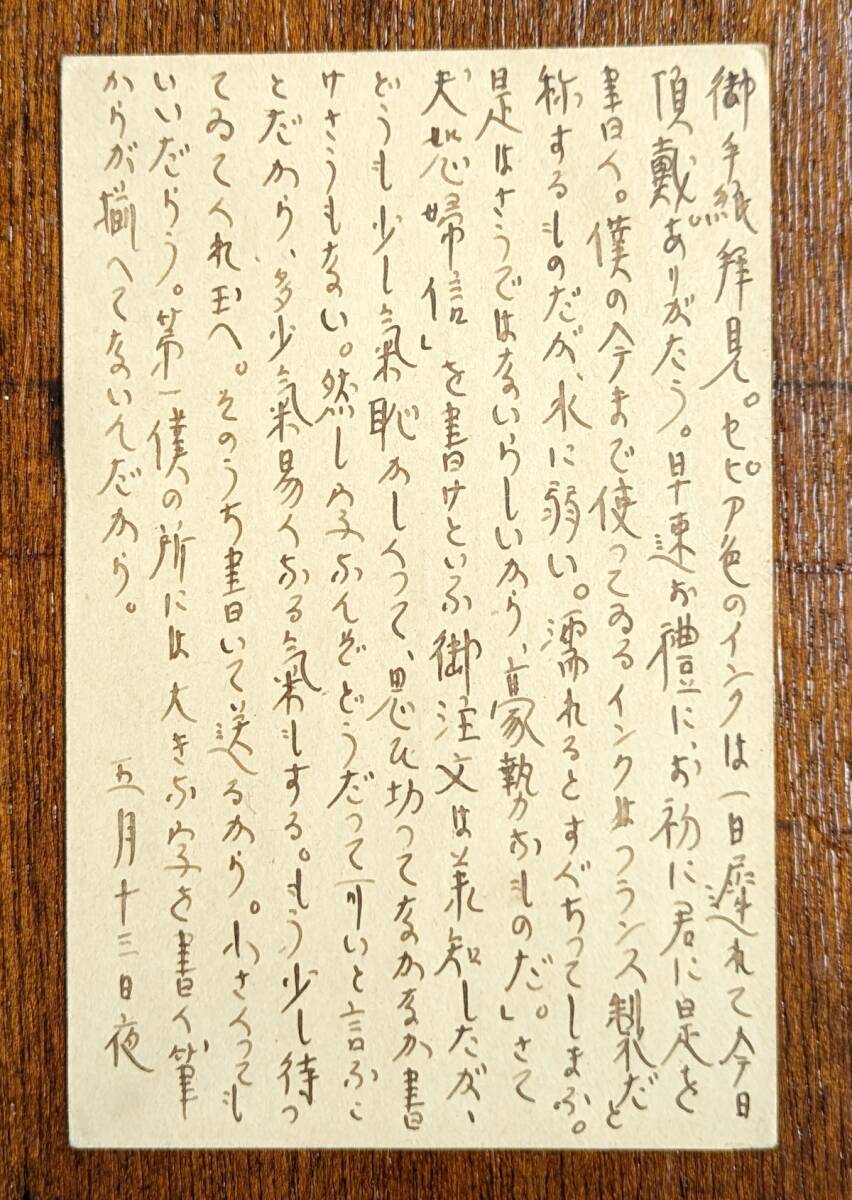 御手紙拝見。セピア色のインクは一日遅れて今日
頂戴。ありがたう。早速お禮に、お初に君に是を
書く。僕の今まで使つてゐるインクはフランス製だと
称するものだが、水に弱い。濡れるとすぐちつてしまふ。
是はさうではないらしいから、豪勢なものだ」さて
夫婦信」を書けといふ御注文は承知したが、
どうも少し氣恥かしくつて、思ひ切つてなかなか書
けさうもない。然し字なんぞどうだつて可いと言ふこ
とだから、多少氣易くなる氣もする。もう少し待つ
てゐてくれ玉へ。そのうち書いて送るから。小さくつても
いいだらう。第一僕の所には大きな字を書く筆
からが揃へてないんだから。
五月十三日夜